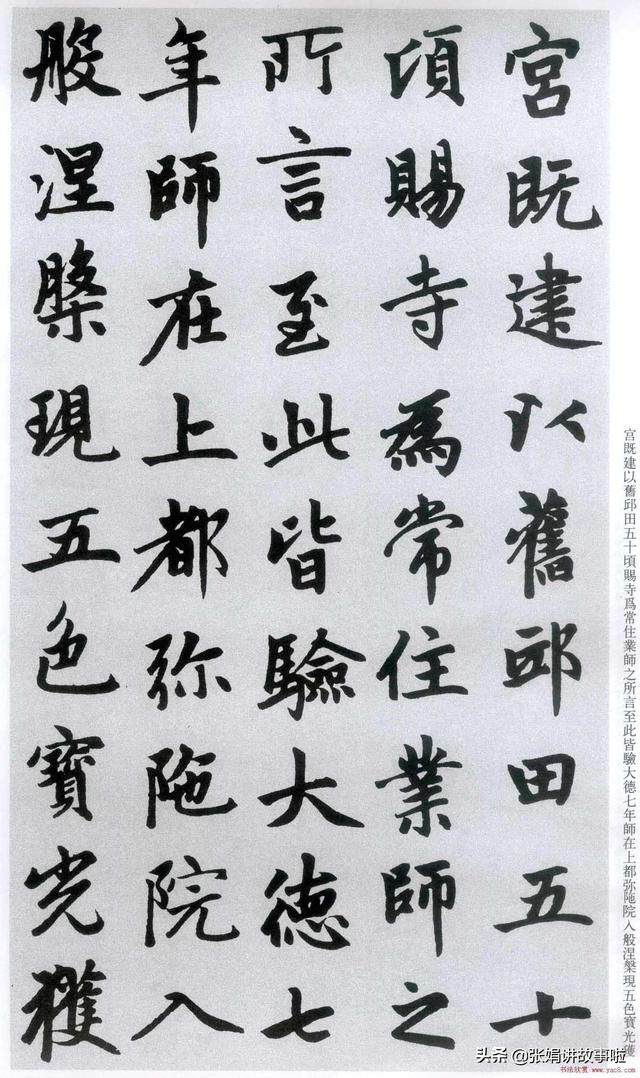 宮既建以舊邱田五十
頃賜寺為常住業師之
所言至此皆驗大德七
年師在上都弥陁院入
般涅槃現五色寶光獲
宫既建以舊邱田五十頃賜寺爲常住業師之所言至此皆驗大德七年師在上都弥陁院入般涅槃現五色寶光獲
头条 @张娟讲故事啦
书法欣赏 www.yac8.com